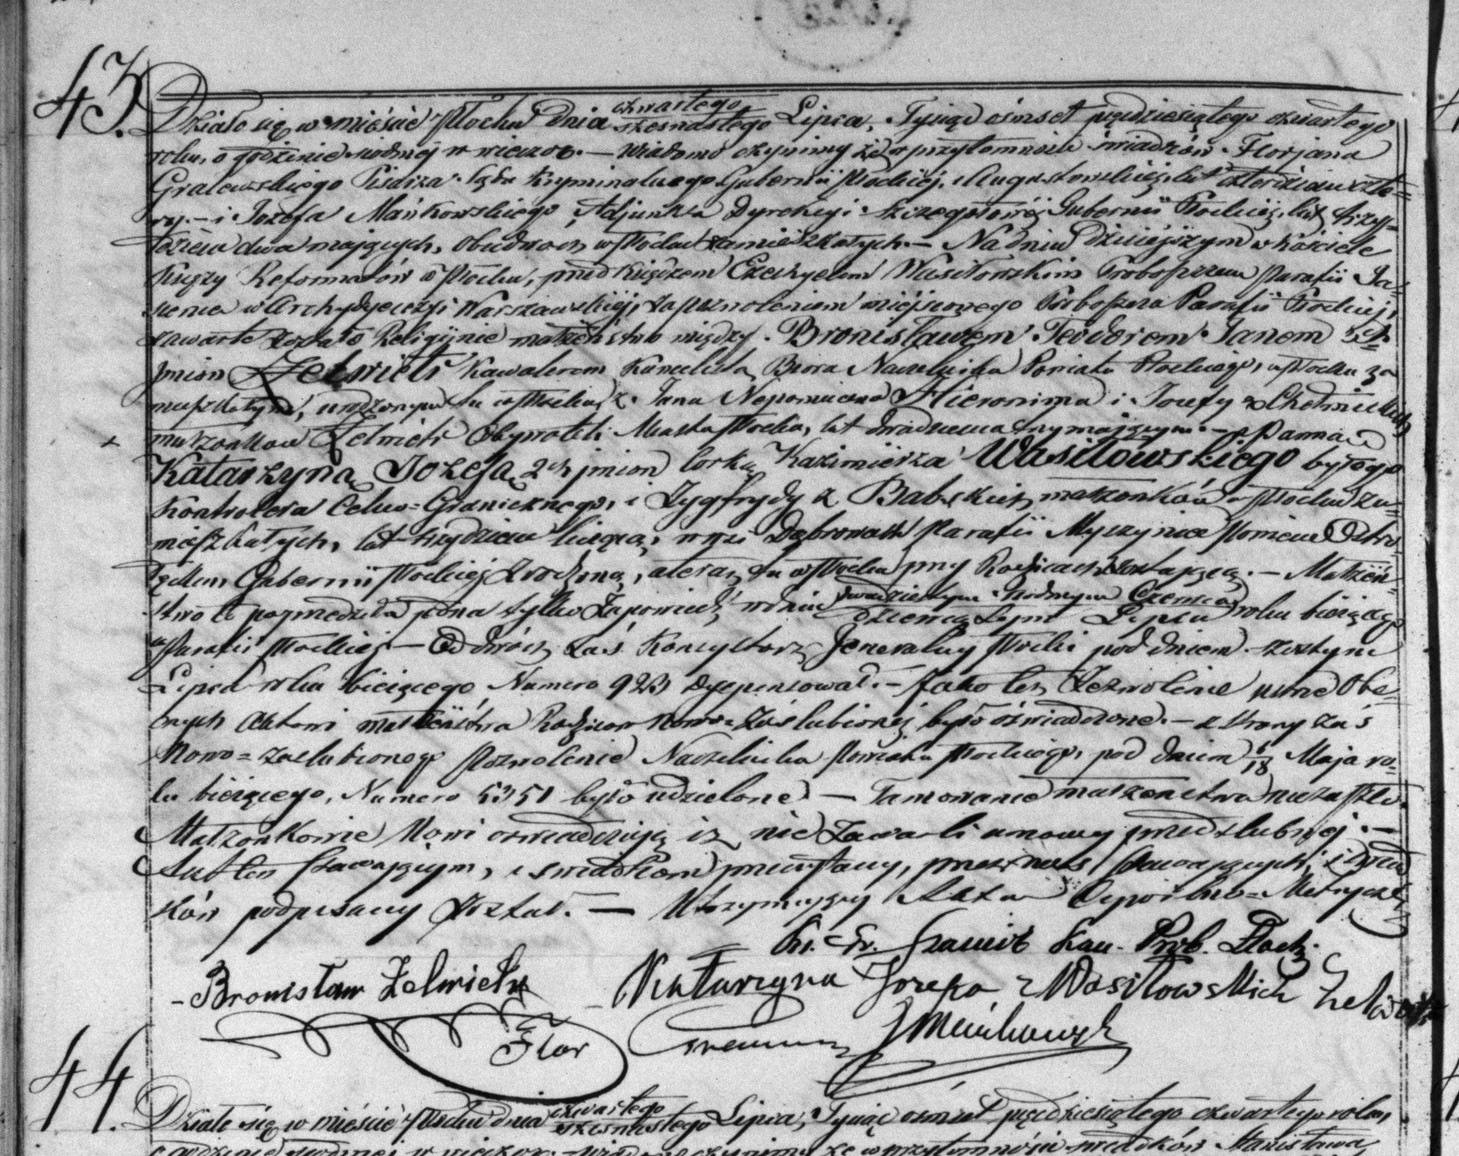 43.
Działo się w mieście Płocku dnia czwartego/szesnastego Lipca, Tysiąc ośmset pięćdziesiątego czwartego
roku, o godzinie siódmej w wieczor. — Wiadomo czynimy że w przytomności świadków Florjana
Gralewskiego Sędziego Sądu Kryminalnego Gubernii Płockiej, lat czterdzieści czte-
ry. — i Józefa Mańkowskiego, Adjunkta Dyrekcyi Szczegółowej Gubernii Płockiej, lat trzy-
dzieści dwa mających, obudwoch w Płocku zamieszkałych. — Na dniu dzisiejszym w kościele
Księży Reformatów w Płocku, przed Księdzem Ezechyelem Wasiłowskim Proboszczem Parafii
w Archydyecezyi Warszawskiej, za pozwoleniem miejscowego Proboszcza Parafii Płockiej,
zawarte zostało Religijnie małżeństwo między Bronisławem Teodorem Janem 3ch
Jmion Zelwietr Kawalerem Kancelistą Biora Naczelnika Powiatu Płockiego, w Płocku za-
mieszkałym, urodzonym tu w Płocku z Jana Nepomucena Hieronima i Józefy z
małżonków Zelwietr Obywateli Miasta Płocka, lat dwadzieścia trzy mającym. — a Panną
Katarzyną Józefą 2ch jmion córką Kazimierza Wasiłowskiego byłego
Kontrolera Celno-Granicznego, i Zygfrydy z Babskich małżonków w Płocku za-
mieszkałych, lat trzydzieści liczącą, w wsi Dąbrowach Parafii Myszyniec Powiecie Ostro-
łęckim Gubernii Płockiej zrodzoną, a teraz tu w Płocku przy Rodzicach zostającą. — Małżeń-
stwo to poprzedziła jedna tylko Zapowiedź w dniu dwudziestym siódmym Czerwca/dziewiątym Lipca roku bieżącego
w Parafii Płockiej. — Od dwóch zaś Konsystorz Jeneralny Płocki pod dniem szóstym
Lipca roku bieżącego Numero 923 dyspensował. — Jako też Zezwolenie ustne Obe-
cnych Aktowi małżeństwa Rodziców Nowo-Zaślubionej było oświadczone. — z strony zaś
Nowo-zaślubionego Pozwolenie Naczelnika Powiatu Płockiego, pod dniem 6/18 Maja ro-
ku bieżącego, Numero 5351 było udzielone. — Tamowanie małżeństwa nie zaszło.
Małżonkowie Nowi oświadczają iż nie zawarli umowy przedślubnej. —
Akt ten stawającym, i świadkom przeczytany, przez nas, stawających, i świad-
ków podpisany został. — Utrzymujący Akta Cywilno-Metryczne
Kan. Prob. Płock.
Bronisław Zelwietr Katarzyna Józefa z Wasiłowskich Zelwietr
Flor Gralewski JMańkowski
44.
Działo się w mieście Płocku dnia czwartego/szesnastego Lipca, Tysiąc ośmset pięćdziesiątego czwartego roku,
o godzinie siódmej w wieczor. — Wiadomo czynimy że w przytomności świadków Stanisława